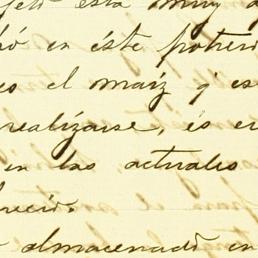 está muy
ó en éste potrer
es el maíz q' es
realizarse, és e
en las actuales
recid.
almacenado en